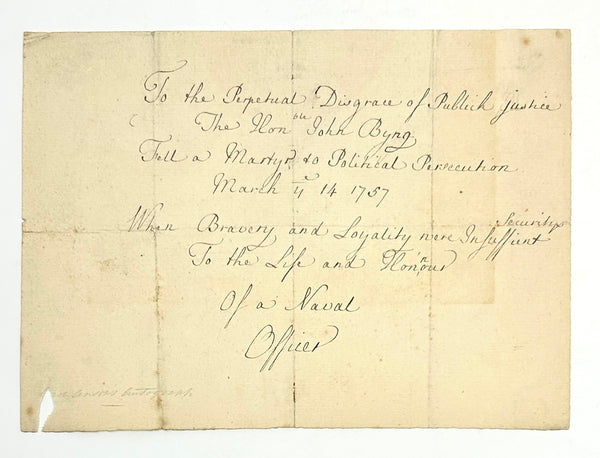 To the Perpetual Disgrace of Publick justice
The Honble John Byng
Fell a Martyr to Political Persecution
March ye 14 1757
Security
When Bravery and Loyality were Insuffient
To the Life and Honnour
Of a Naval
Officer
autograph